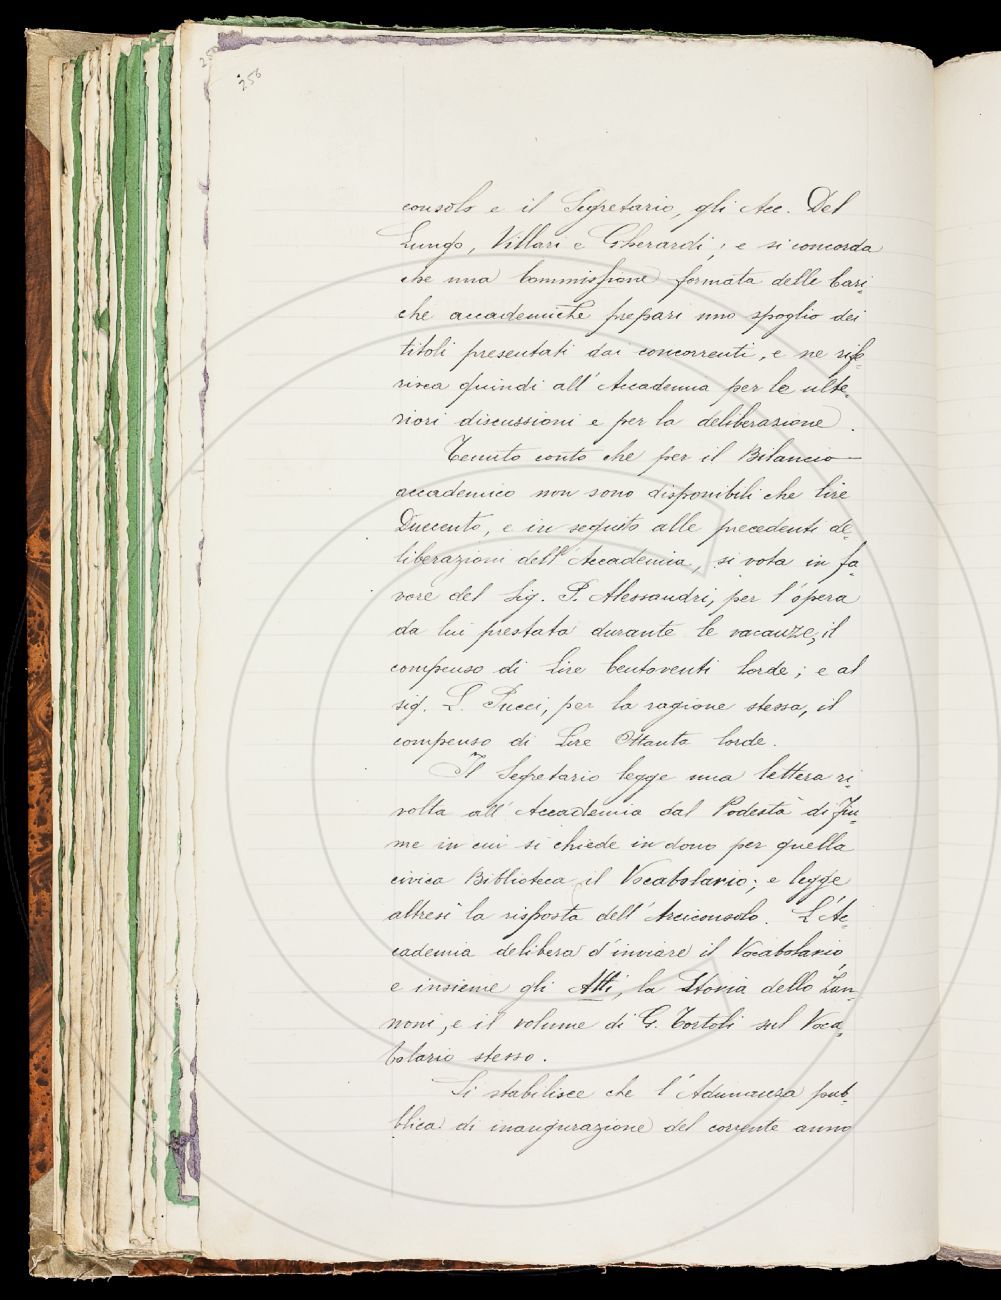 256
consolo e il Segretario, gli Acc. Del
Lungo, Villari e Gherardi; e si concorda
che una Commissione formata delle Cari-
che accademiche prepari uno spoglio dei
titoli presentati dai concorrenti, e ne rife-
risca quindi all'Accademia per le ulte-
riori discussioni e per la deliberazione.
Tenuto conto che per il Bilancio
accademico non sono disponibili che lire
Duecento, e in seguito alle precedenti de-
liberazioni dell'Accademia, si vota in fa-
vore del Sig. P. Alessandri, per l'opera
da lui prestata durante le vacanze, il
compenso di Lire Centoventi lorde; e al
sig. L. Pucci, per la ragione stessa, il
compenso di Lire Ottanta lorde.
Il Segretario legge una lettera ri-
volta all'Accademia dal Podestà di Fiu-
me in cui si chiede in dono per quella
civica Biblioteca il Vocabolario; e legge
altresì la risposta dell'Arciconsolo. L'Ac-
cademia delibera d'inviare il Vocabolario,
e insieme gli Atti, la Storia dello Zan-
noni, e il volume di G. Tortoli sul Voca-
bolario stesso.
Si stabilisce che l'Adunanza pub-
blica di inaugurazione del corrente anno